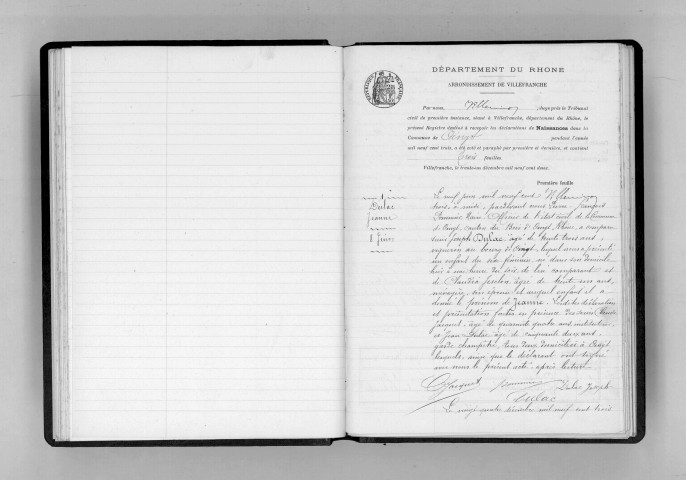 DÉPARTEMENT DU RHONE
ARRONDISSEMENT DE VILLEFRANCHE
Par nous, Juge près le Tribunal
civil de première instance, séant à Villefranche, département du Rhône, le
présent Registre destiné à recevoir les déclarations de Naissances dans la
Commune de Oingt pendant l'année
mil neuf cent trois, a été coté et paraphé par première et dernière, et contient
trois feuilles.
Villefranche, le trente-un décembre mil neuf cent deux.
Première feuille
1
Dulac
Jeanne
8 Juin
Le neuf juin mil neuf cent
trois, à midi, pardevant nous
Maire, Officier de l'état civil de la Commune
d'Oingt, canton du Bois d'Oingt, Rhône, a comparu
sieur Joseph Dulac, âgé de trente trois ans,
vigneron au bourg d'Oingt, lequel nous a présenté
un enfant du sexe féminin, né dans son domicile
hier à une heure du soir, de lui comparant et
de Claudia âgée de trente un ans
ménagère, son épouse et auquel enfant il a
donné le prénom de Jeanne. Lesdites déclaration
et présentation faites en présence des sieurs Claude
Jacquet, âgé de quarante quatre ans instituteur,
et Jean Dulac âgé de cinquante deux ans
garde champêtre, tous deux domiciliés à Oingt
lesquels, ainsi que le déclarant ont signé
avec nous le présent acte après lecture.
Jacquet Dulac Joseph
Dulac
Le vingt quatre décembre mil neuf cent trois